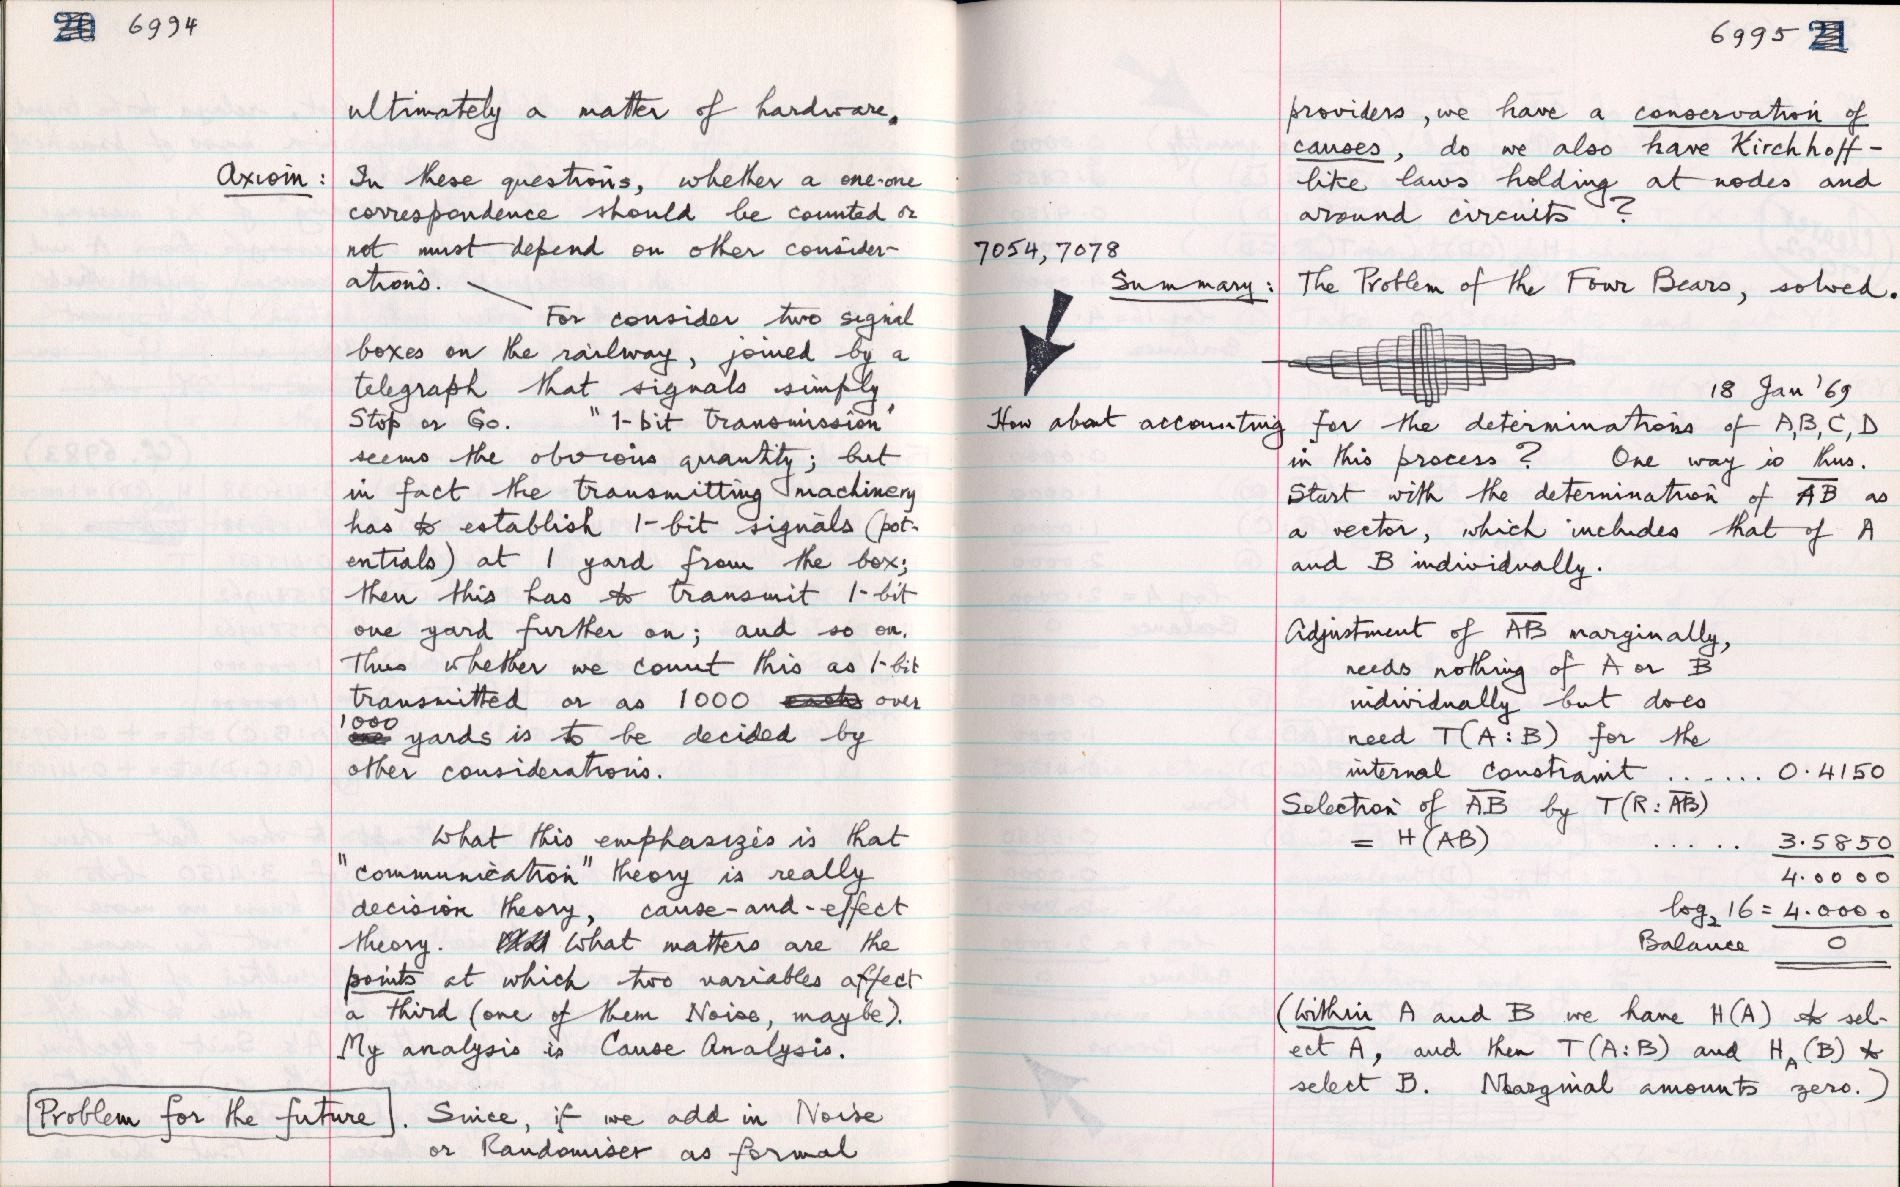 20 6994
ultimately a matter of hardware.
Axiom: In these questions, whether a one-one
correspondence should be counted or
not must depend on other consider-
ations.
For consider two signal
boxes on the railway, joined by a
telegraph that signals simply
Stop or Go. "1-bit transmission"
seems the obvious quantity; but
in fact the transmitting machinery
has to establish 1-bit signals (pot-
entials) at 1 yard from the box;
then this has to transmit 1-bit
one yard further on; and so on.
Thus whether we count this as 1-bit
transmitted or as 1000 over
1000
yards is to be decided by
other considerations.
What this emphasizes is that
"communication" theory is really
decision theory, cause-and-effect
theory. What matters are the
points at which two variables affect
a third (one of them Noise, maybe).
My analysis is Cause Analysis.
Problem for the future. Since, if we add in Noise
or Randomiser as formal
6995 21
providers, we have a conservation of
causes, do we also have Kirchhoff-
like laws holding at nodes and
around circuits?
7054, 7078
Summary: The Problem of the Four Bears, solved.
18 Jan '69
How about accounting for the determinations of A,B,C,D
in this process? One way is thus.
Start with the determination of A̅B̅ as
a vector, which includes that of A
and B individually.
Adjustment of A̅B̅ marginally,
needs nothing of A or B
individually but does
need T(A:B) for the
internal constraint ...... 0.4150
Selection of A̅B̅ by T(R:A̅B̅)
= H(AB) ..... 3.5850
4.0000
log₂ 16 = 4.0000
Balance 0
(Within A and B we have H(A) to sel-
ect A, and then T(A:B) and H_A(B) to
select B. Marginal amounts zero.)